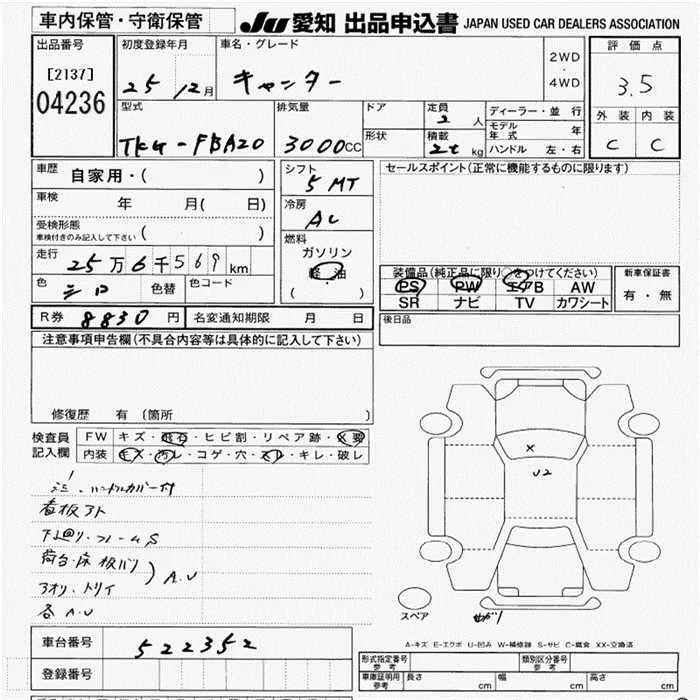 車内保管・守衛保管
JU 愛知 出品申込書 JAPAN USED CAR DEALERS ASSOCIATION
出品番号
[2137]
04236
初度登録年月
25 12月
車名・グレード
キャンター
2WD
・
4WD
評価点
3.5
外装 内装
C C
型式
TKG-FBA20
排気量
3000CC
ドア
形状
定員
2人
積載
2t kg
ディーラー・並行
モデル年式 年
ハンドル 左・右
車歴
自家用・( )
車検
年 月( 日)
受検形態
車検付きのみ記入して下さい ( )
走行
25万6千569km
色
シロ
色替
色コード
シフト
5MT
冷房
AC
燃料
ガソリン
軽油
( )
セールスポイント(正常に機能するものに限ります)
装備品(純正品に限り○をつけてください)
PS PW エアB AW
SR ナビ TV カワシート
新車保証書
有・無
R券 8830円 名変通知期限 月 日
後日品
注意事項申告欄(不具合内容等は具体的に記入して下さい)
修復歴 有(箇所 )
検査員
記入欄
FW キズ・飛石・ヒビ割・リペア跡・X要
内装 キズ・汚レ・コゲ・穴・スレ・キレ・破レ
ハンドルカバー付
看板アト
下回り、フレームS
荷台・床板バリ
アオリ、トリイ
) A.U
各A.U
X
U2
スペア
A-キズ E-エクボ U-凹み W-補修跡 S-サビ C-腐食 XX-交換済
車台番号 522352
登録番号
形式指定番号
参考
類別区分番号
参考
車庫証明用
参考
長さ cm 幅 cm 高さ cm